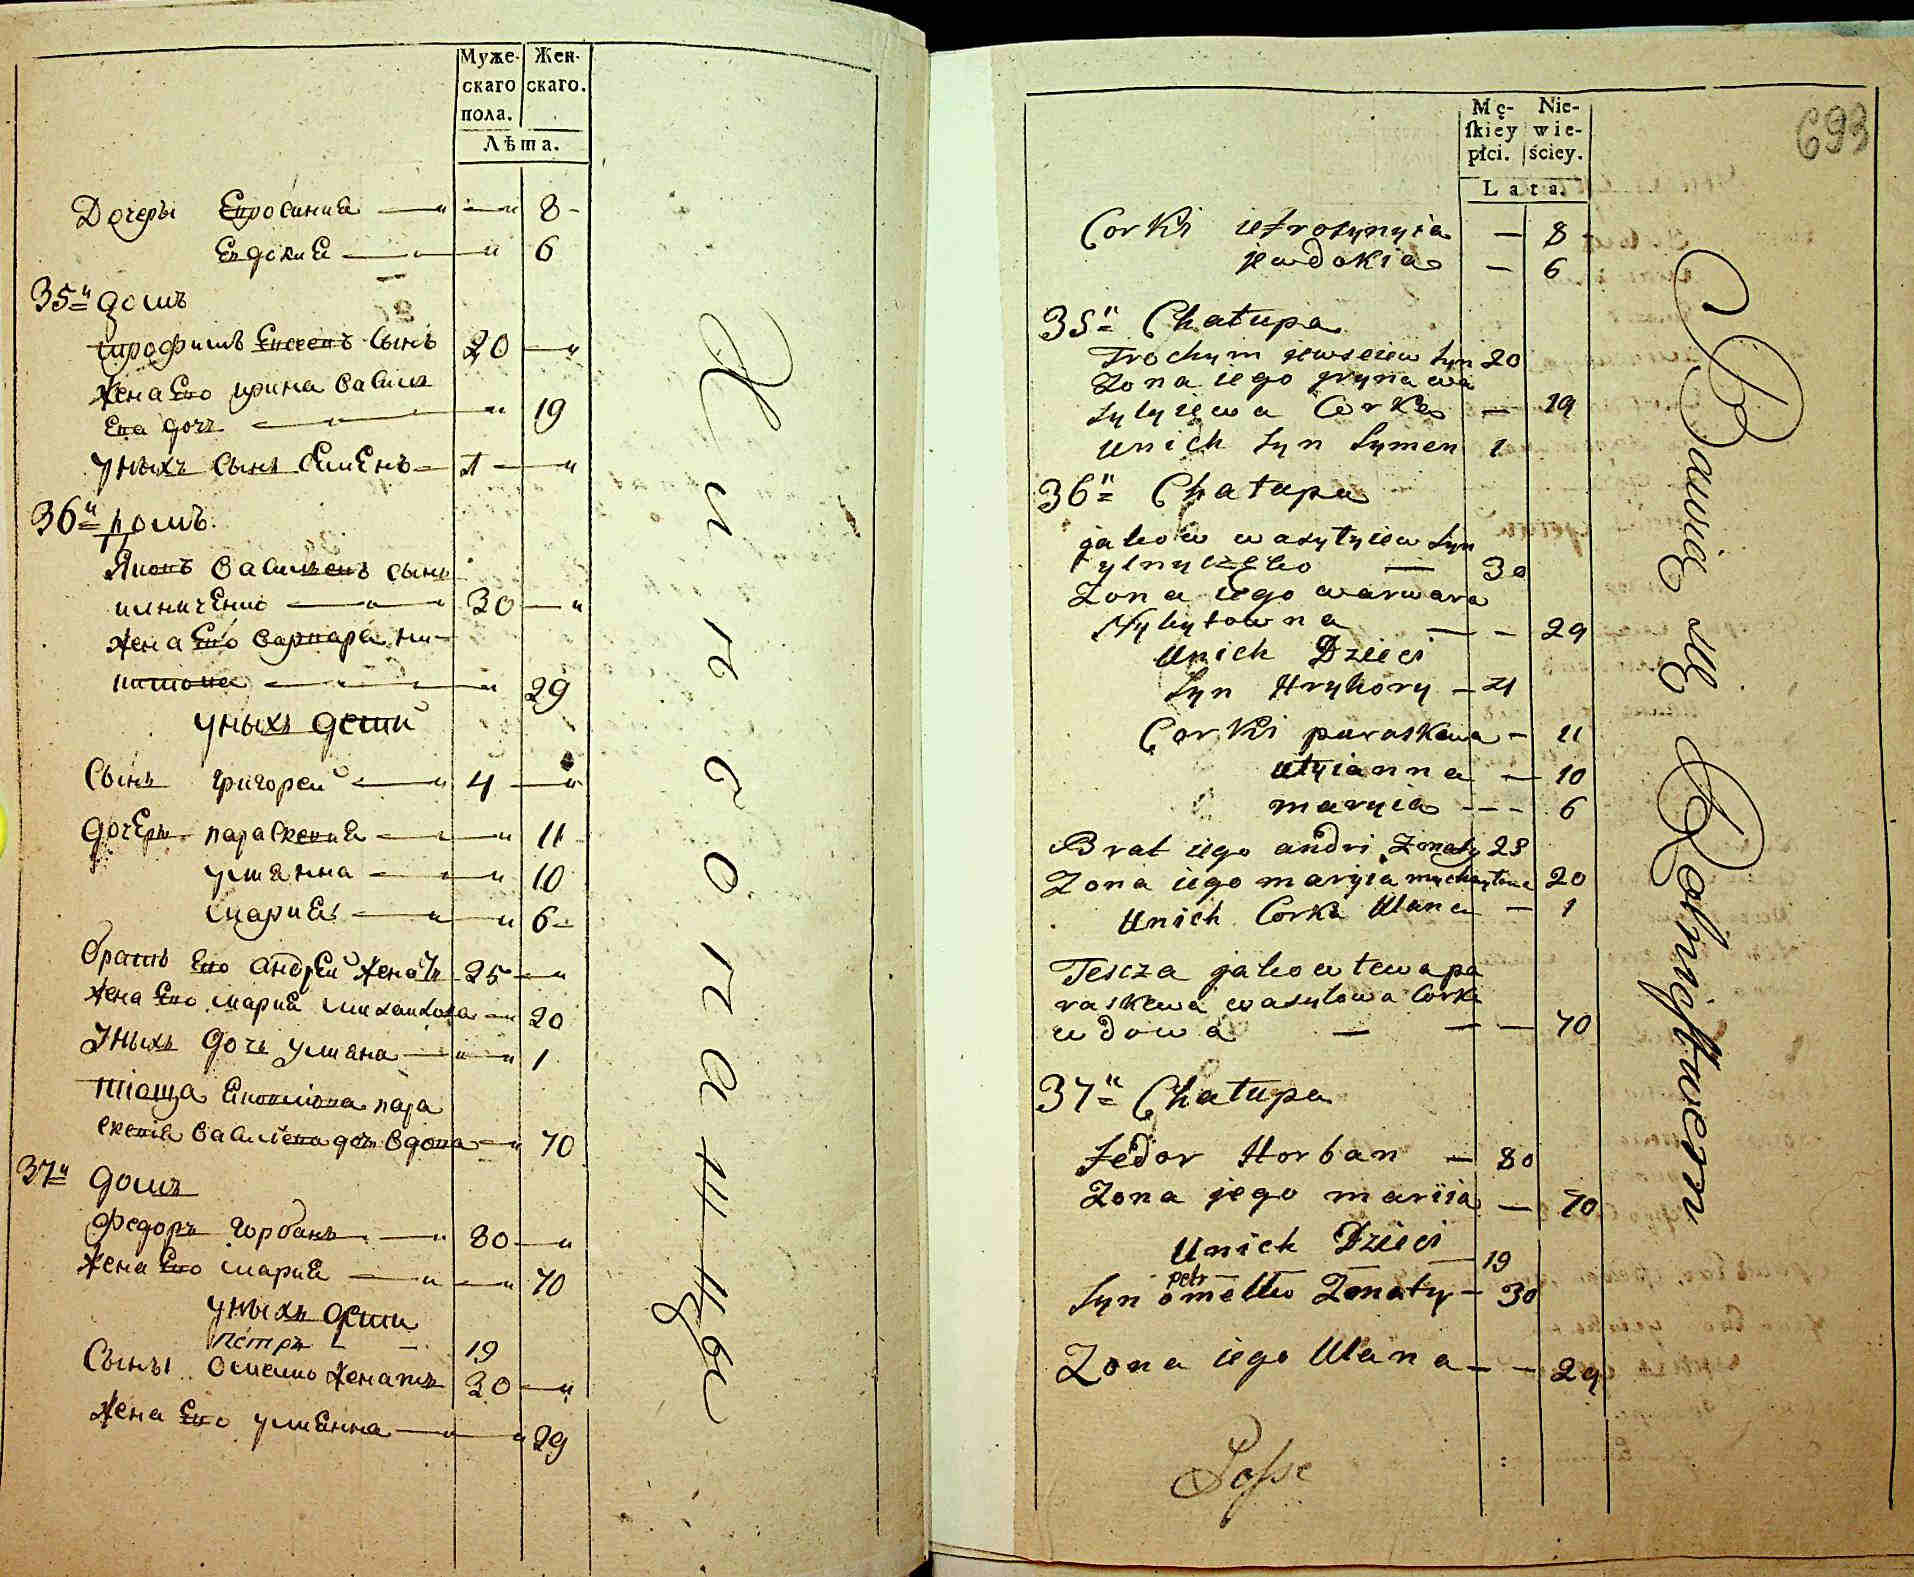 Муже- Жен-
скаго скаго.
пола.
Лѣта.
Дочеры Епросиниа — „ — „ 8 -
Евдокиа — „ 6
35й домъ
трофимъ Евсеевъ сынъ 20 — „
жена Его ирина васил
Ева дочъ — „ 19
уныхъ сынъ семенъ — 1 — „
36й домъ
Яковъ василевъ сынъ
илниченко — „ — „ 30 — „
жена Его варвара ни-
китова — „ 29
уныхъ дети
Сынъ григорей — „ 4 — „
дочеръ параскевиа — „ 11
улианна — „ 10
мариа — „ 6 -
братъ Его андрей женатъ 25 — „
жена Его мариа михаилова — „ 20
уныхъ дочъ улиана — „ — „ 1
тіоща Яковлева пара
скевіа василева дочъ вдова — „ 70
37й домъ
Федоръ горбанъ — „ 80 — „
жена Его мариа — „ — „ 70
уныхъ дети
петръ — 19
Сыны омелко женатъ 30 — „
жена Его улианна — „ 29
Хлѣбопашцы
Mę- Nie-
ſkiey wie-
płci. ściey.
Lata.
693
Corki iefrosynyia — 8
jewdokia — 6
35ta Chałupa
Trochym jewseiew syn 20
Zona iego jryna wa
sylyiewa Corka — 19
Unich syn Symen 1
36ta Chałupa
jakow wasylyiew syn
jylnyczeko — 30
Zona iego warwara
Nykytowna — - 29
Unich Dzieci
Syn Hryhory — 4
Corki paraskewa — 11
Ulyianna — 10
maryia - - - 6
Brat iego andri Zonaty 25
Zona iego maryia mychaylowa 20
Unich Corka Ulana — 1
Tescza jakowlewa pa
raskewa wasylowa Corka
wdowa — — — 70
37ma Chałupa
Fedor Horban — 80
Zona jego mariia — 70
Unich Dzieci
petr — — — 19
Syn omelko Zonaty — 30
Zona iego Ulana — - 29
Bawią się Rolnictwem